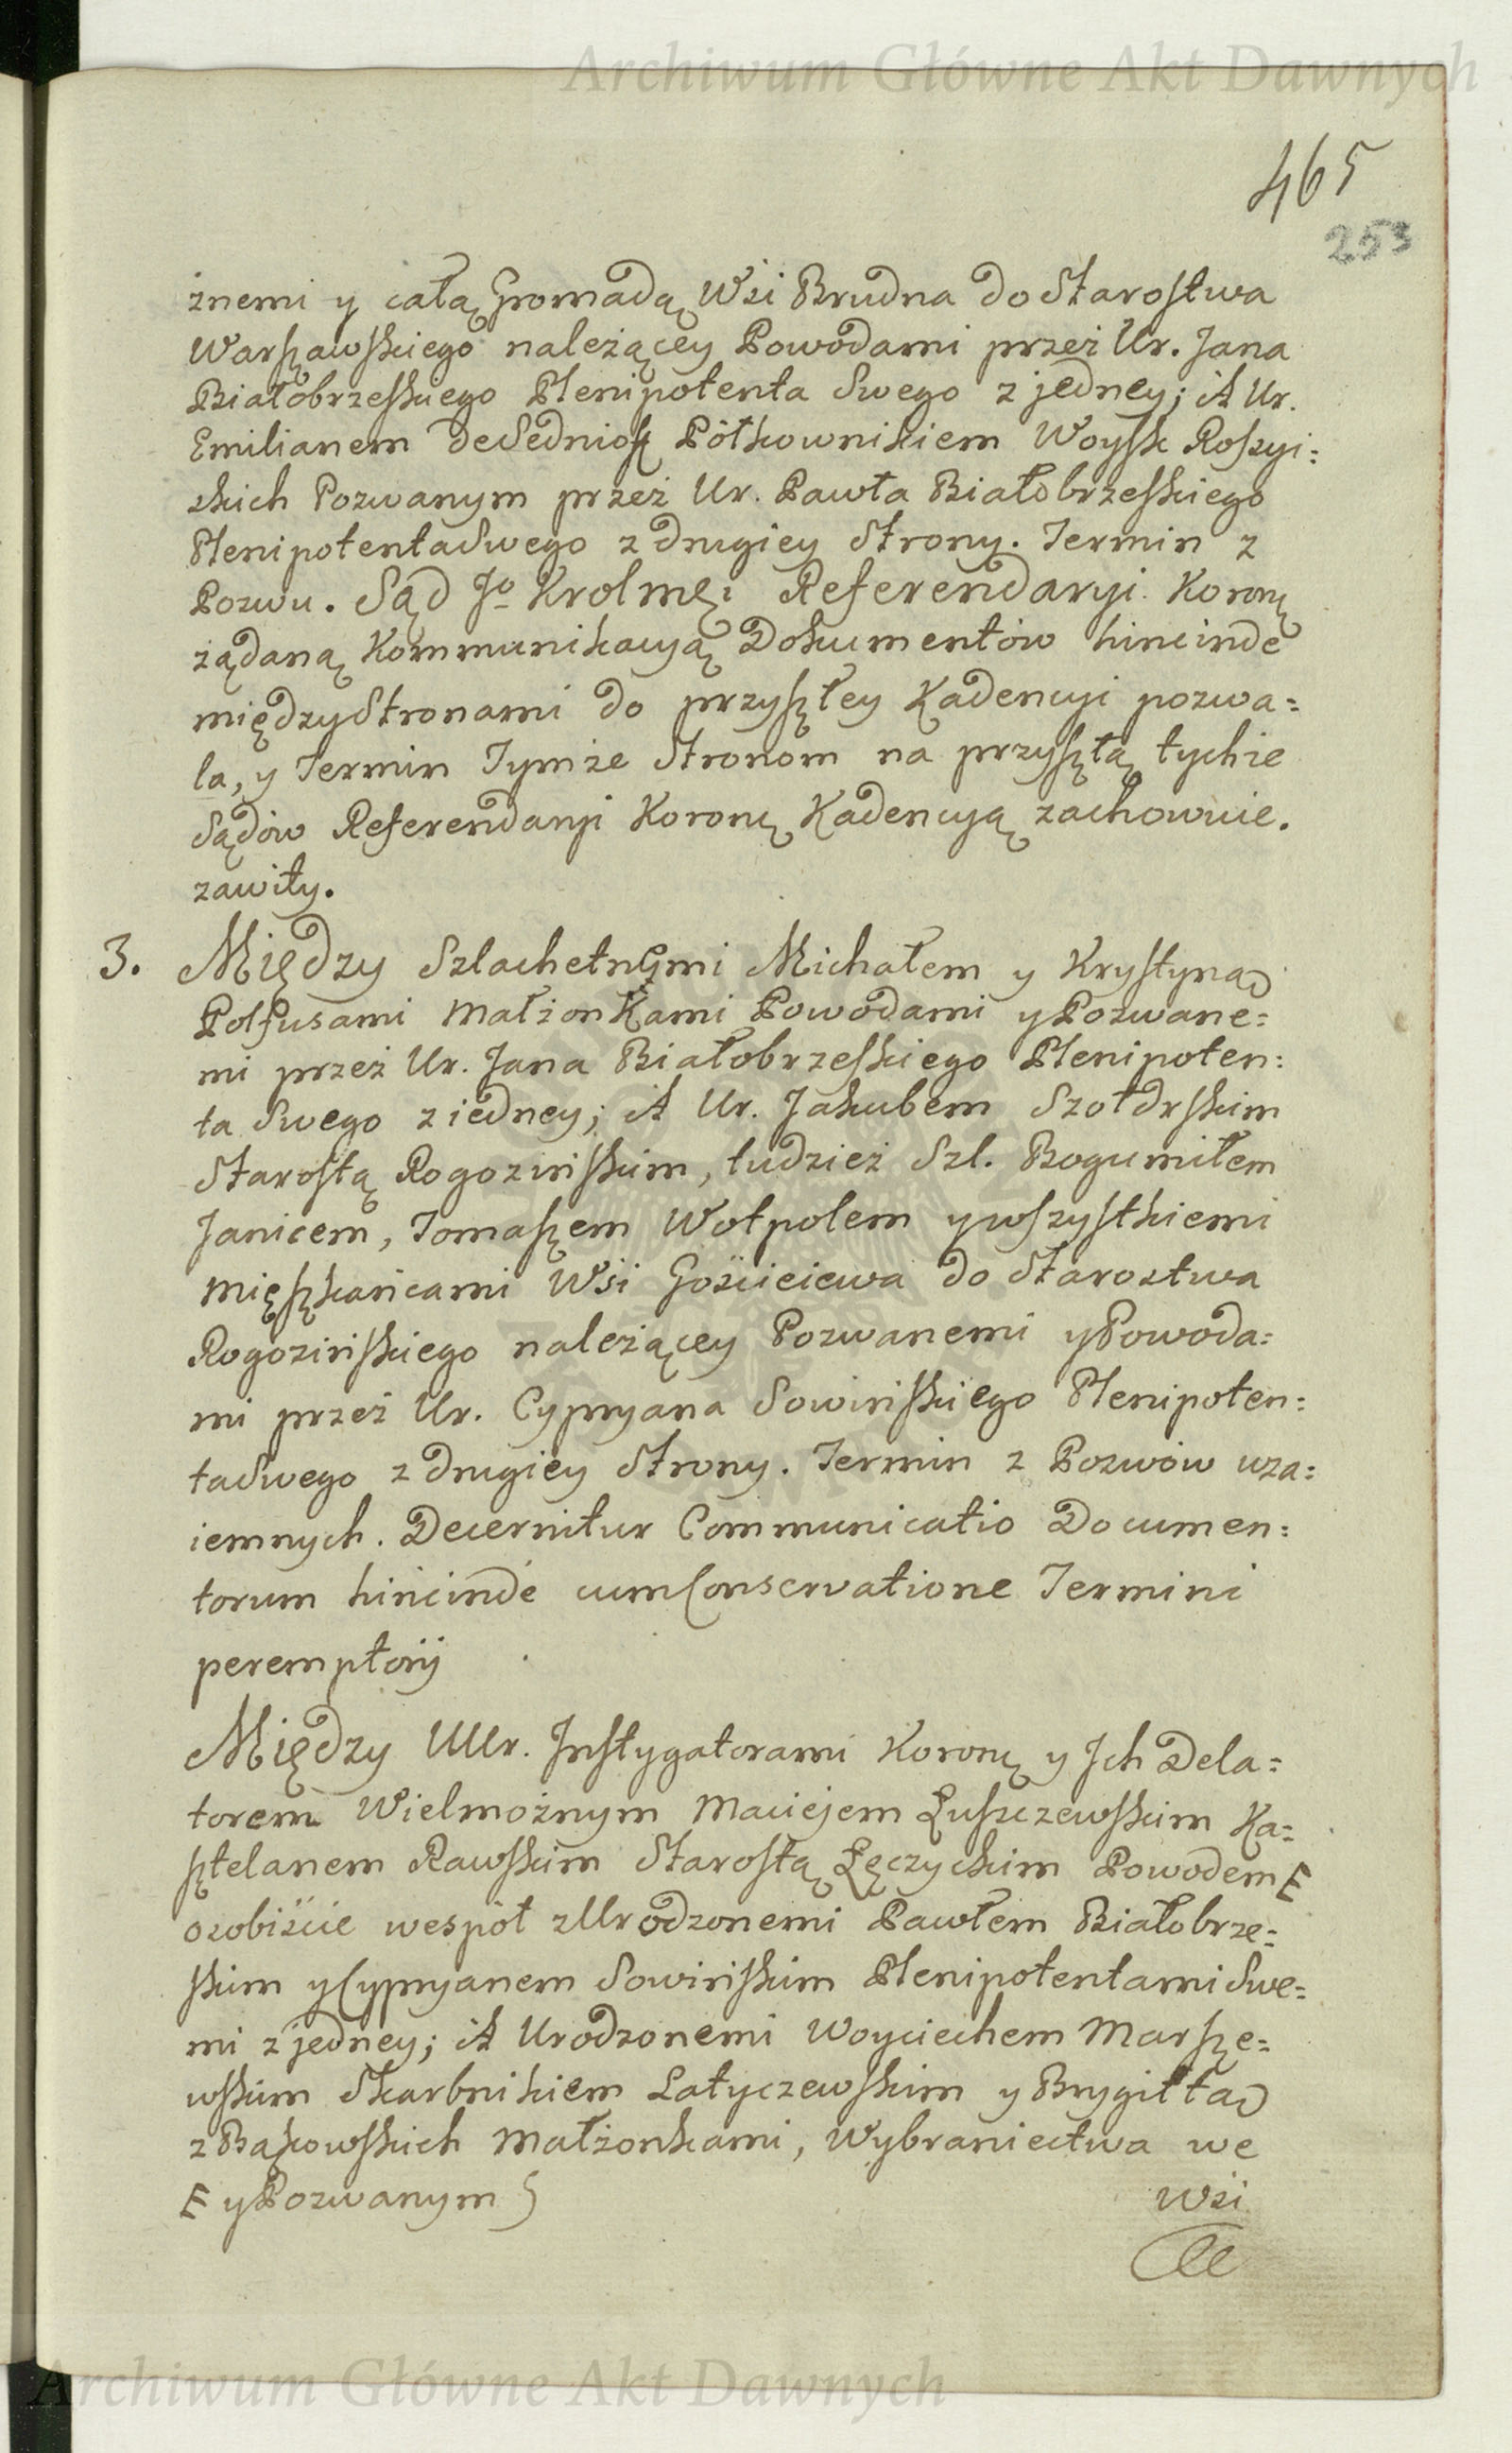 Archiwum Główne Akt Dawnych
465
253
żnemi y całą Gromadą Wsi Brudna do Starostwa
Warszawskiego należącey Powodami przez Ur. Jana
Białobrzeskiego Plenipotenta Swego z jedney; A Ur.
Emilianem Półkownikiem Woysk Rossyi:
skich Pozwanym przez Ur. Pawła Białobrzeskiego
Plenipotenta Swego z drugiey Strony. Termin z
Pozwu. Sąd Jo Krolmci Referendaryi Koronę
żądaną Kommunikacyą Dokumentów hincinde
między Stronami do przyszłey Kadencyi pozwa=
la, y Termin Tymże Stronom na przyszłą tychże
Sądów Referendaryi Koronę Kadencyą zachowuie.
zawiły.
3. Między Szlachetnymi Michałem y Krystyną
Polfusami Małżonkami Powodami y Pozwane=
mi przez Ur. Jana Białobrzeskiego Plenipoten:
ta Swego z iedney; A Ur. Jakubem Szołdrskim
Starostą Rogozińskim, tudzież Szl. Bogumiłem
Janicem, Tomaszem Wolpolem y wszystkiemi
Mięszkańcami Wsi Gościeiewa do Starostwa
Rogozińskiego należącey Pozwanemi y Powoda=
mi przez Ur. Cypryana Sowińskiego Plenipoten:
ta Swego z drugiey Strony. Termin z Pozwow wza:
iemnych. Decernitur Communicatio Documen:
torum hincinde cum Conservatione Termini
peremptorij
Między UUr. Instygatorami Koronę y Jch Dela=
torem Wielmożnym Maciejem Łuszczewskim Ka=
sztelanem Rawskim Starostą Łęczyckim Powodem E
osobiście wespół z Urodzonemi Pawłem Białobrze=
skim y Cypryanem Sowińskim Plenipotentami Swe=
mi z jedney; A Urodzonemi Woyciechem Marsze=
wskim Skarbnikiem Latyczewskim y Brygittą
z Bąkowskich Małżonkami, Wybraniectwa we
E y Pozwanym
Wsi
Archiwum Główne Akt Dawnych